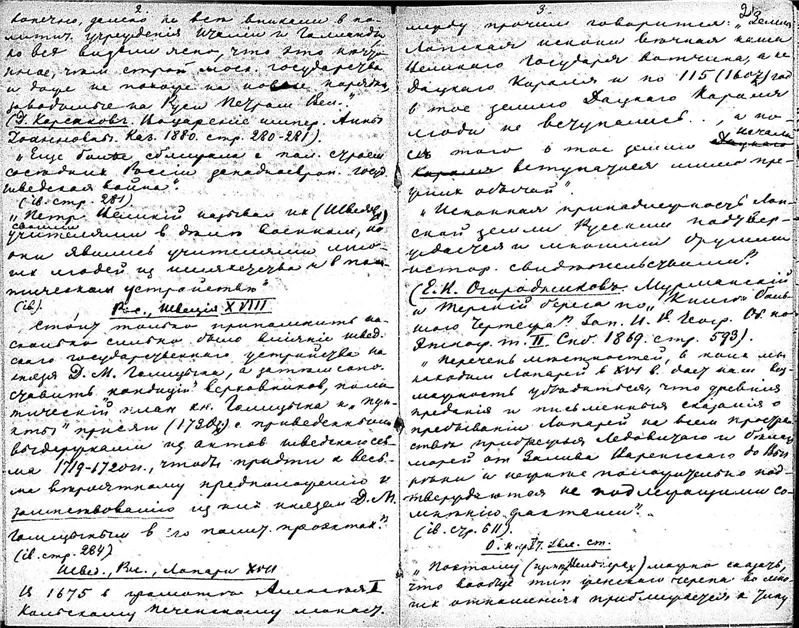 2.
конечно, далеко не все вникали в по-
литич. учреждения Италии и Голландіи
но все видели ясно, что это нечто
иное, чем строй моск. государства
и даже не похоже на новые порядки
заводимые на Руси Петром Вел."
(Д. Корсаков. Воцареніе импер. Анны
Іоанновны. Каз. 1880. стр. 280-281).
„Еще более сблизила с пол. строем
соседних Россіи западноевроп. госуд.
шведская война"
(ib. стр. 281)
„Петр Великій называл их (Шведов)
своими
учителями в деле военном, но
они явились учителями мно-
гих людей из шляхетства и в поли-
тическом устройстве"
(ib).
Рос., Швеція XVIII
„Стоит только припомнить на-
сколько сильно было вліяніе швед-
скаго государственнаго устройства на
князя Д. М. Голицына, а затем сопо-
ставить „кондиціи" верховников, поли-
тическій план кн. Голицына и „пун-
кты" присяги (1730г) с приведенными
выдержками из актов шведскаго сей-
ма 1719-1720гг., чтобы придти к весь-
ма вероятному предположенію о
заимствованіи из них князем Д. М.
Голицыным в его полит. проектах."
(ib. стр. 284)
Швец., Рос., Лопари XVII
В 1675 в грамоте Алексея
Кольскому Печенскому монаст.
3.
между прочим говорится: „Земля
Лопская искони вечная наша
Великаго Государя вотчина, а не
Дацкаго Короля и по 115 (1607) год
в тое землю Дацкаго Короля
люди не вступались.., а по-
сле того в тое землю
вступатися мимо пре-
жних обычай".
„Исконная принадлежность Лоп-
ской земли Русским подтвер-
ждается и многими другими
истор. свидетельствами".
(Е. К. Огородников. Мурманскій
и Терскій берега по „Книге Боль-
шого Чертежа". Зап. И. Р. Геогр. Об. по
Этногр. т. II Спб. 1869. стр. 593).
„Перечень местностей, в коих мы
находим Лопарей в XVI в. дает нам воз-
можность убедиться, что древнія
преданія и письменныя сказанія о
пребываніи Лопарей на всем простран-
стве прибрежья Ледовитаго и Белаго
морей от Залива Варенгскаго до
положительно под-
тверждаются не подлежащими со-
мненію фактами".
(ib. стр. 611).
„Поэтому можно сказать,
что вообще тип финскаго черепа во мно-
гих отношеніях приближается к типу